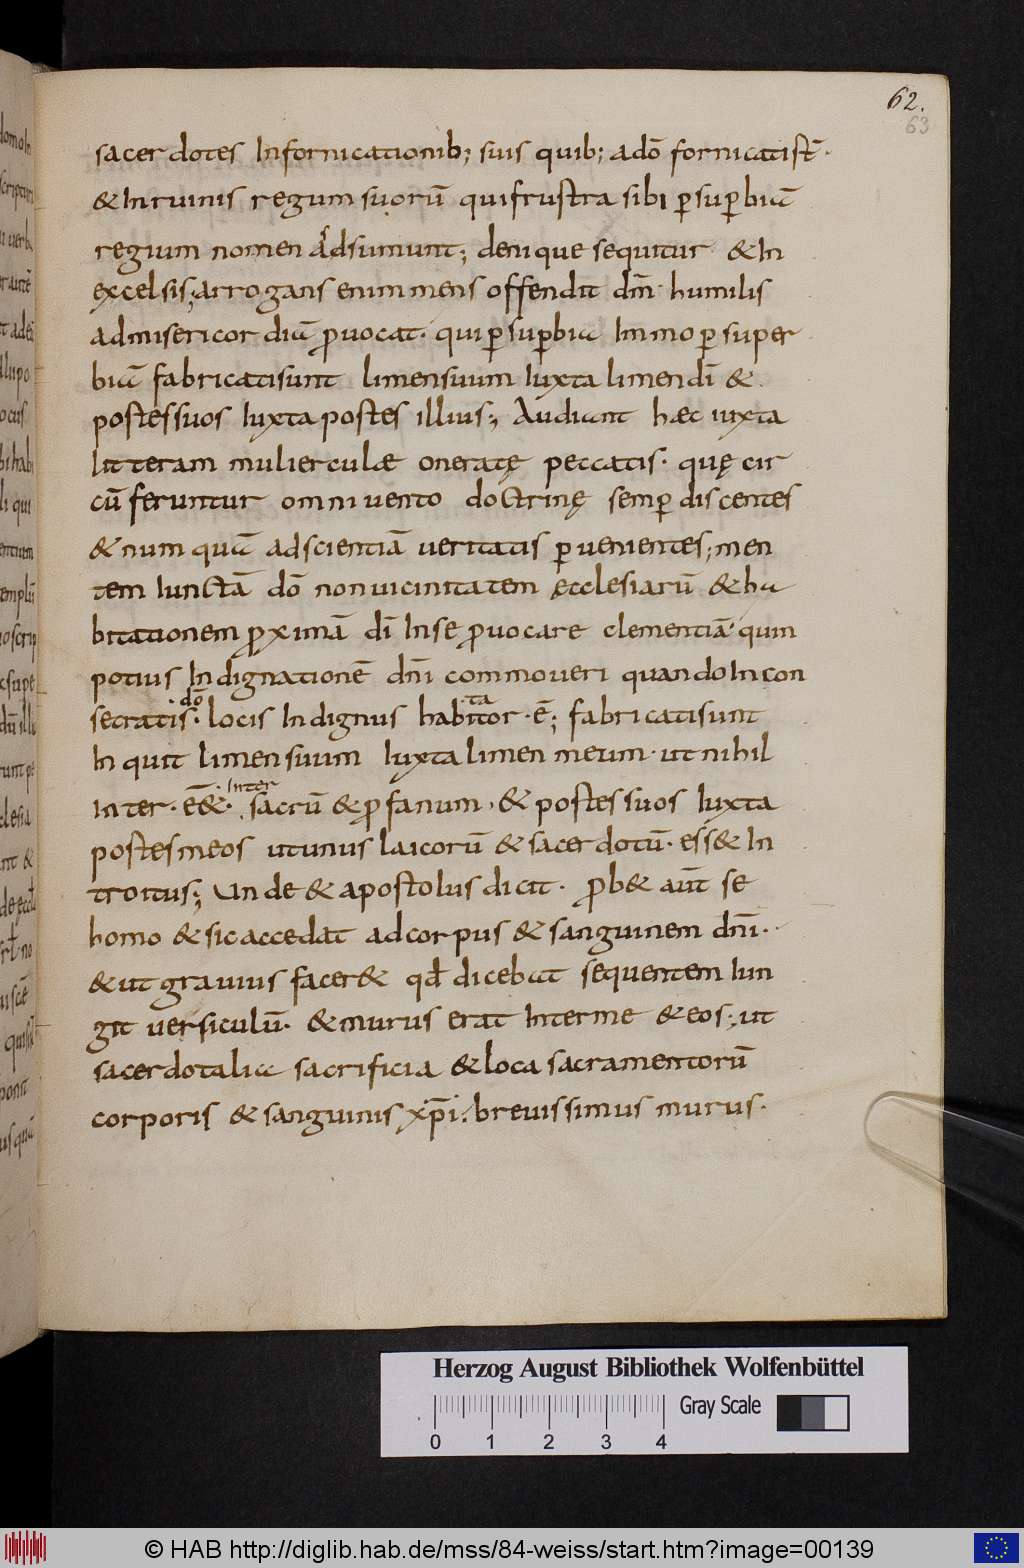 62.
63
sacerdotes Infornicationib; suis quib; adō fornicatist̄.
& Inruinis regum suorū quifrustra sibi ꝑsuꝑbiā
regium nomen adsumunt; denique sequitur & In
excelsis; arrogans enim mens offendit dm̄ humilis
admisericordiā ꝓuocat. qui ꝑsuꝑbia Immo ꝑsuper
biā fabricatisunt limensuum Iuxta limendī &
postessuos Iuxta postes illius; Audiant haec iuxta
litteram mulierculae oneratę peccatis. quę cir
cūferuntur omni uento doctrinę semꝑ discentes
& numquā adscientiā ueritatis ꝑuenientes; men
tem Iunctā dō non uicinitatem ęcclesiarū & ha
bitationem ꝓximā dī Inse ꝓuocare clementiā quin
potius Indignationē dn̄i commoueri quando In con
dō ta
secratis. locis Indignus habitor. ē; fabricatisunt
Inquit limensuum Iuxta limen meum. ut nihil
Inter
Inter. ēē&. sacrū & ꝓfanum. & postessuos Iuxta
postesmeos utunus laicorū & sacerdotū. ess& In
troitus; Unde & apostolus dicit. ꝓb& aūt se
homo & sicaccedat adcorpus & sanguinem dn̄i.
& ut grauius facer& qđ dicebat sequentem Iun
git uersiculū. & murus erat Interme & eos; ut
sacerdotalia sacrificia & loca sacramentorū
corporis & sanguinis xp̄i. breuissimus murus.
Herzog August Bibliothek Wolfenbüttel
Gray Scale
0 1 2 3 4
© HAB http://diglib.hab.de/mss/84-weiss/start.htm?image=00139